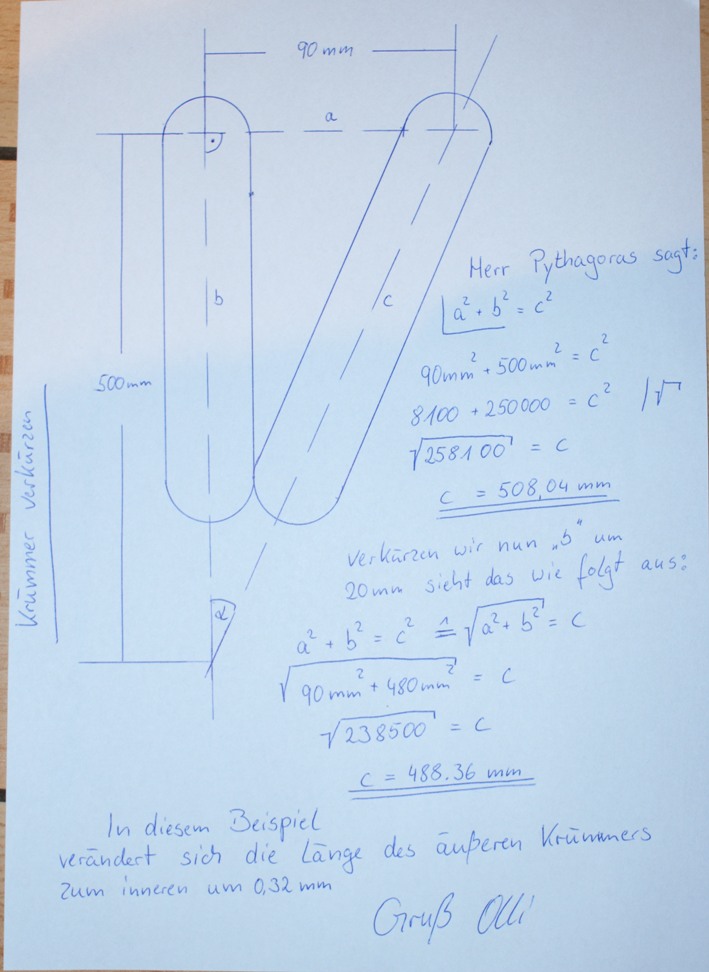 90 mm
a
b
c
500 mm
α
Krümmer verkürzen
Herr Pythagoras sagt:
a² + b² = c²
90mm² + 500mm² = c²
8100 + 250000 = c² /√
√258100 = c
c = 508,04 mm
verkürzen wir nun „b" um
20mm sieht das wie folgt aus:
a² + b² = c² ≙ √a² + b² = c
√90mm² + 480mm² = c
√238500 = c
c = 488.36 mm
In diesem Beispiel
verändert sich die Länge des äußeren Krümmers
zum inneren um 0,32 mm
Gruß Olli